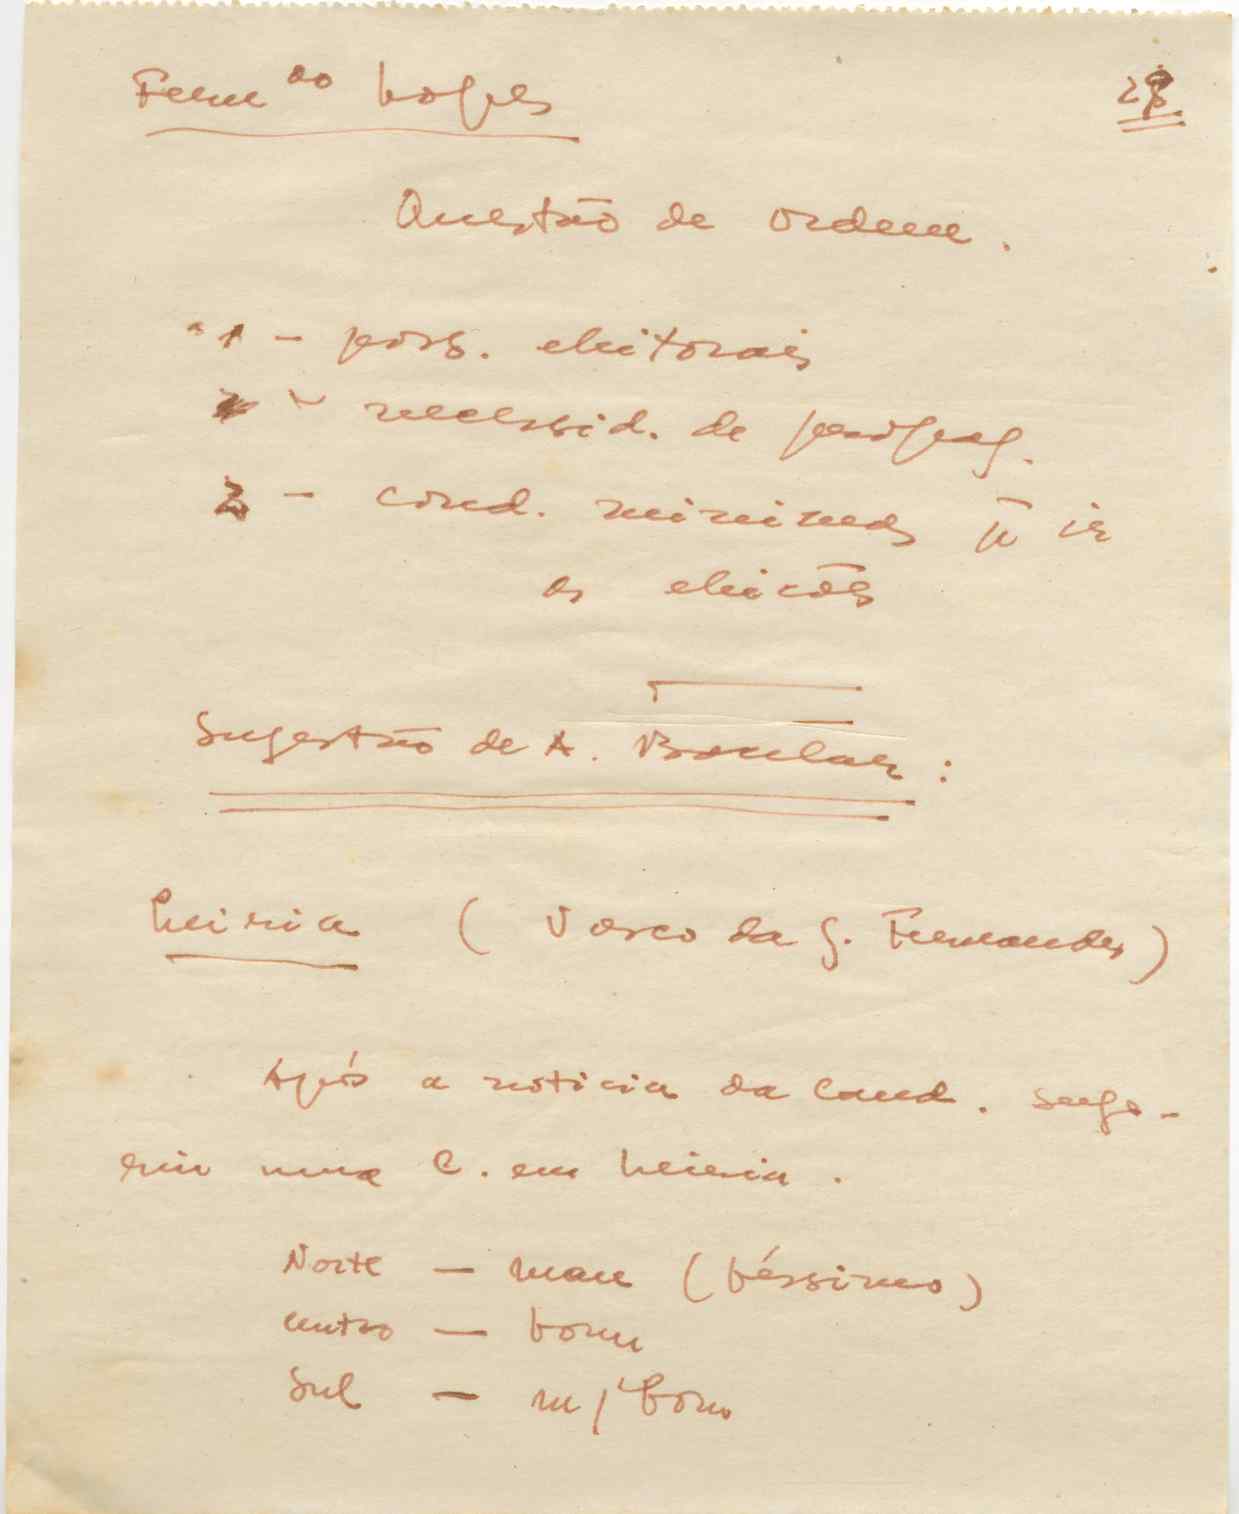 Fernão Lopes
Questão de ordem.
1 - poss. eleitorais
- necessid. de propag.
2 - cond. minimas p. ir
as eleicões
Sugestão de A. :
Leiria ( Vasco da G. Fernandes )
Após a noticia da cand. suge-
riu uma C. em Leiria.
Norte — mau ( péssimo )
centro — bom
Sul — m/ bom